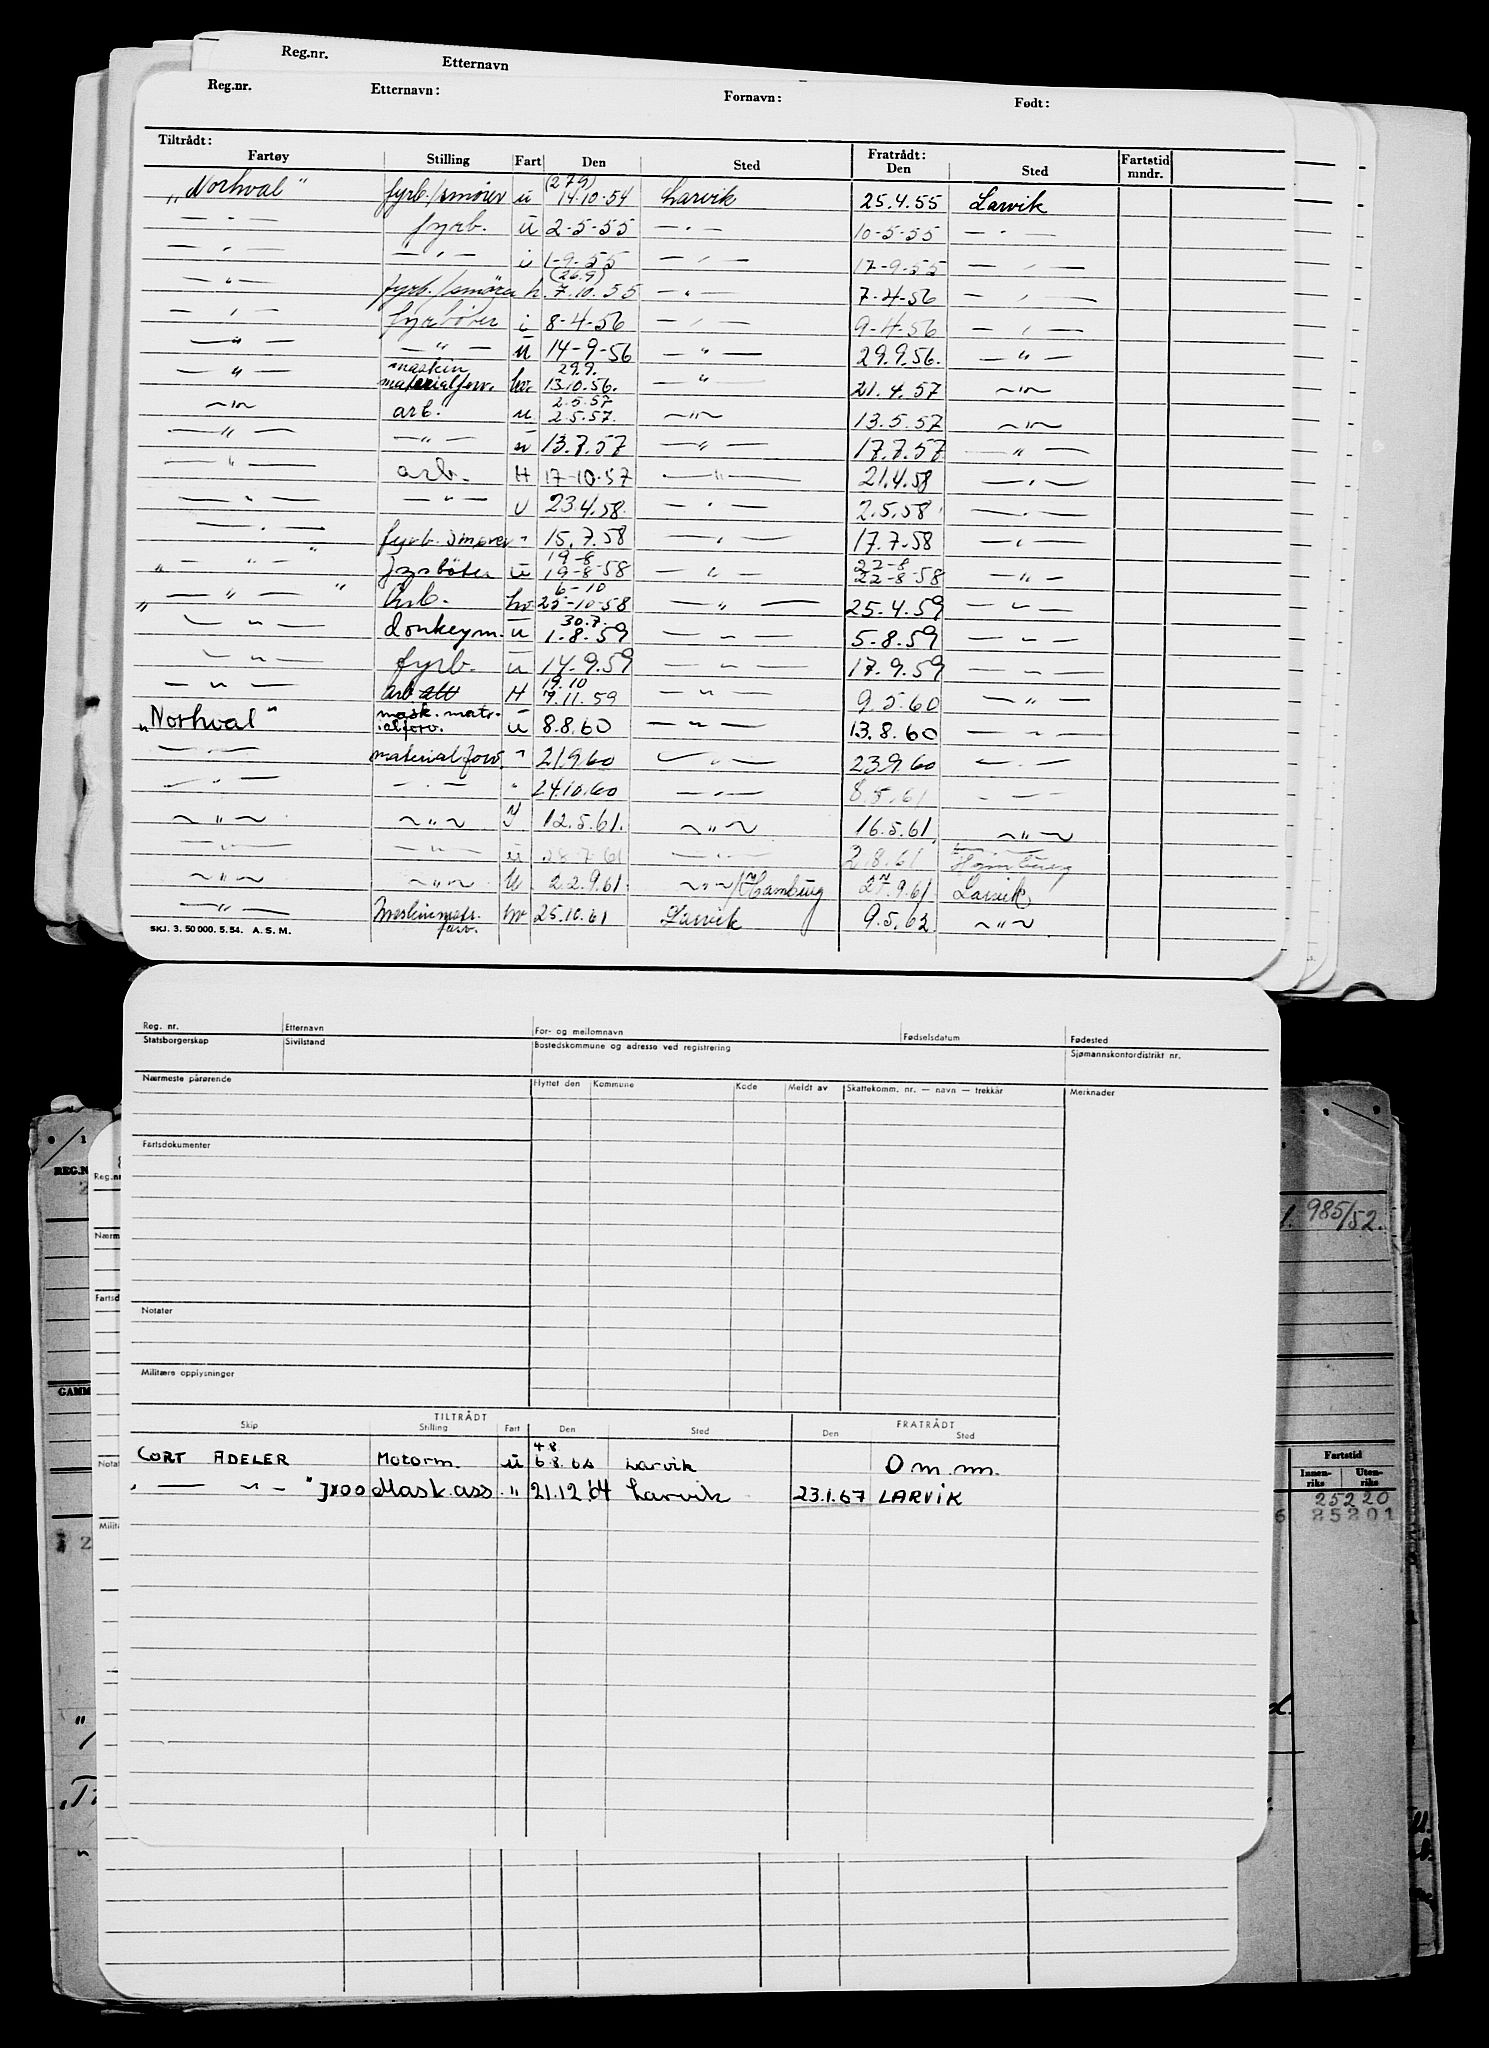 Reg.nr. Etternavn
Reg.nr. Etternavn: Fornavn: Født:
Tiltrådt: Fratrådt:
Fartøy Stilling Fart Den Sted Den Sted Fartstid mndr.
(27.9)
„Norhval" fyrb./smörer u 14.10.54 Larvik 25.4.55 Larvik
— " — fyrb. u 2-5-55 — " — 10-5-55 — " —
— " — — " — u 1-9-55 — " — 17-9-55 — " —
(26.9)
— " — fyrb./smörer h. 7.10.55 — " — 7-4-56 — " —
— " — fyrböter i 8-4-56 — " — 9-4-56 — " —
— " — — " — u 14-9-56 — " — 29.9.56. — " —
maskin 29.9.
— " — materialforv. hv. 13.10.56. — " — 21.4.57 — " —
2.5.57
— " — arb. u 2.5.57. — " — 13.5.57 — " —
— " — — " — u 13.7.57 — " — 17.7.57 — " —
— " — arb. H 17-10-57 — " — 21.4.58 — " —
— " — — " — u 23.4.58. — " — 2.5.58 — " —
— " — fyrb. smörer " 15.7.58 — " — 17.7.58 — " —
19-8 22-8
„ — " — " fyrböter u 19-8-58 — " — 22-8-58 — " —
6-10
„ — " — " Arb. hv 25-10-58 — " — 25.4.59 — " —
30.7.
— " — donkeym. u 1.8.59 — " — 5.8.59 — " —
— " — fyrb. u 14.9.59 — " — 17.9.59 — " —
19.10
— " — arb att H 7.11.59 — " — 9.5.60 — " —
mask. matr-
„Norhval" ialforv. u 8.8.60 — " — 13.8.60 — " —
— " — materialforv. " 21.9.60 — " — 23.9.60 — " —
— " — — " — " 24.10.60 — " — 8.5.61 — " —
— " — — " — 12.5.61. — " — 16.5.61. — " —
— " — — " — u 28.7.61 — " — 2.8.61 Hamburg
— " — — " — u 22.9.61. — " — / Hamburg 27.9.61 Larvik
— " — Maskinmatr. forv. hv 25.10.61 Larvik 9.5.62 — " —
SKJ. 3. 50 000. 5. 54. A. S. M.
Reg. nr. Etternavn For- og mellomnavn Fødselsdatum Fødested
Statsborgerskap Sivilstand Bostedskommune og adresse ved registrering Sjømannskontordistrikt nr.
Nærmeste pårørende Flyttet den Kommune Kode Meldt av Skattekomm. nr. — navn — trekkår Merknader
Fartsdokumenter
Notater
Militære opplysninger
TILTRÅDT FRATRÅDT
Skip Stilling Fart Den Sted Den Sted
4 8
CORT ADELER Motorm. u 6.8.64 Larvik O m. m.
" — " — " JXOO Mask.ass " 21.12 64 Larvik 23.1.67 LARVIK
REG.N
Reg.nr
Nærm
Fartsd
GAMM
Notat
Milit
985/52.
Fartstid
Innenriks Utenriks
25220
6 25201